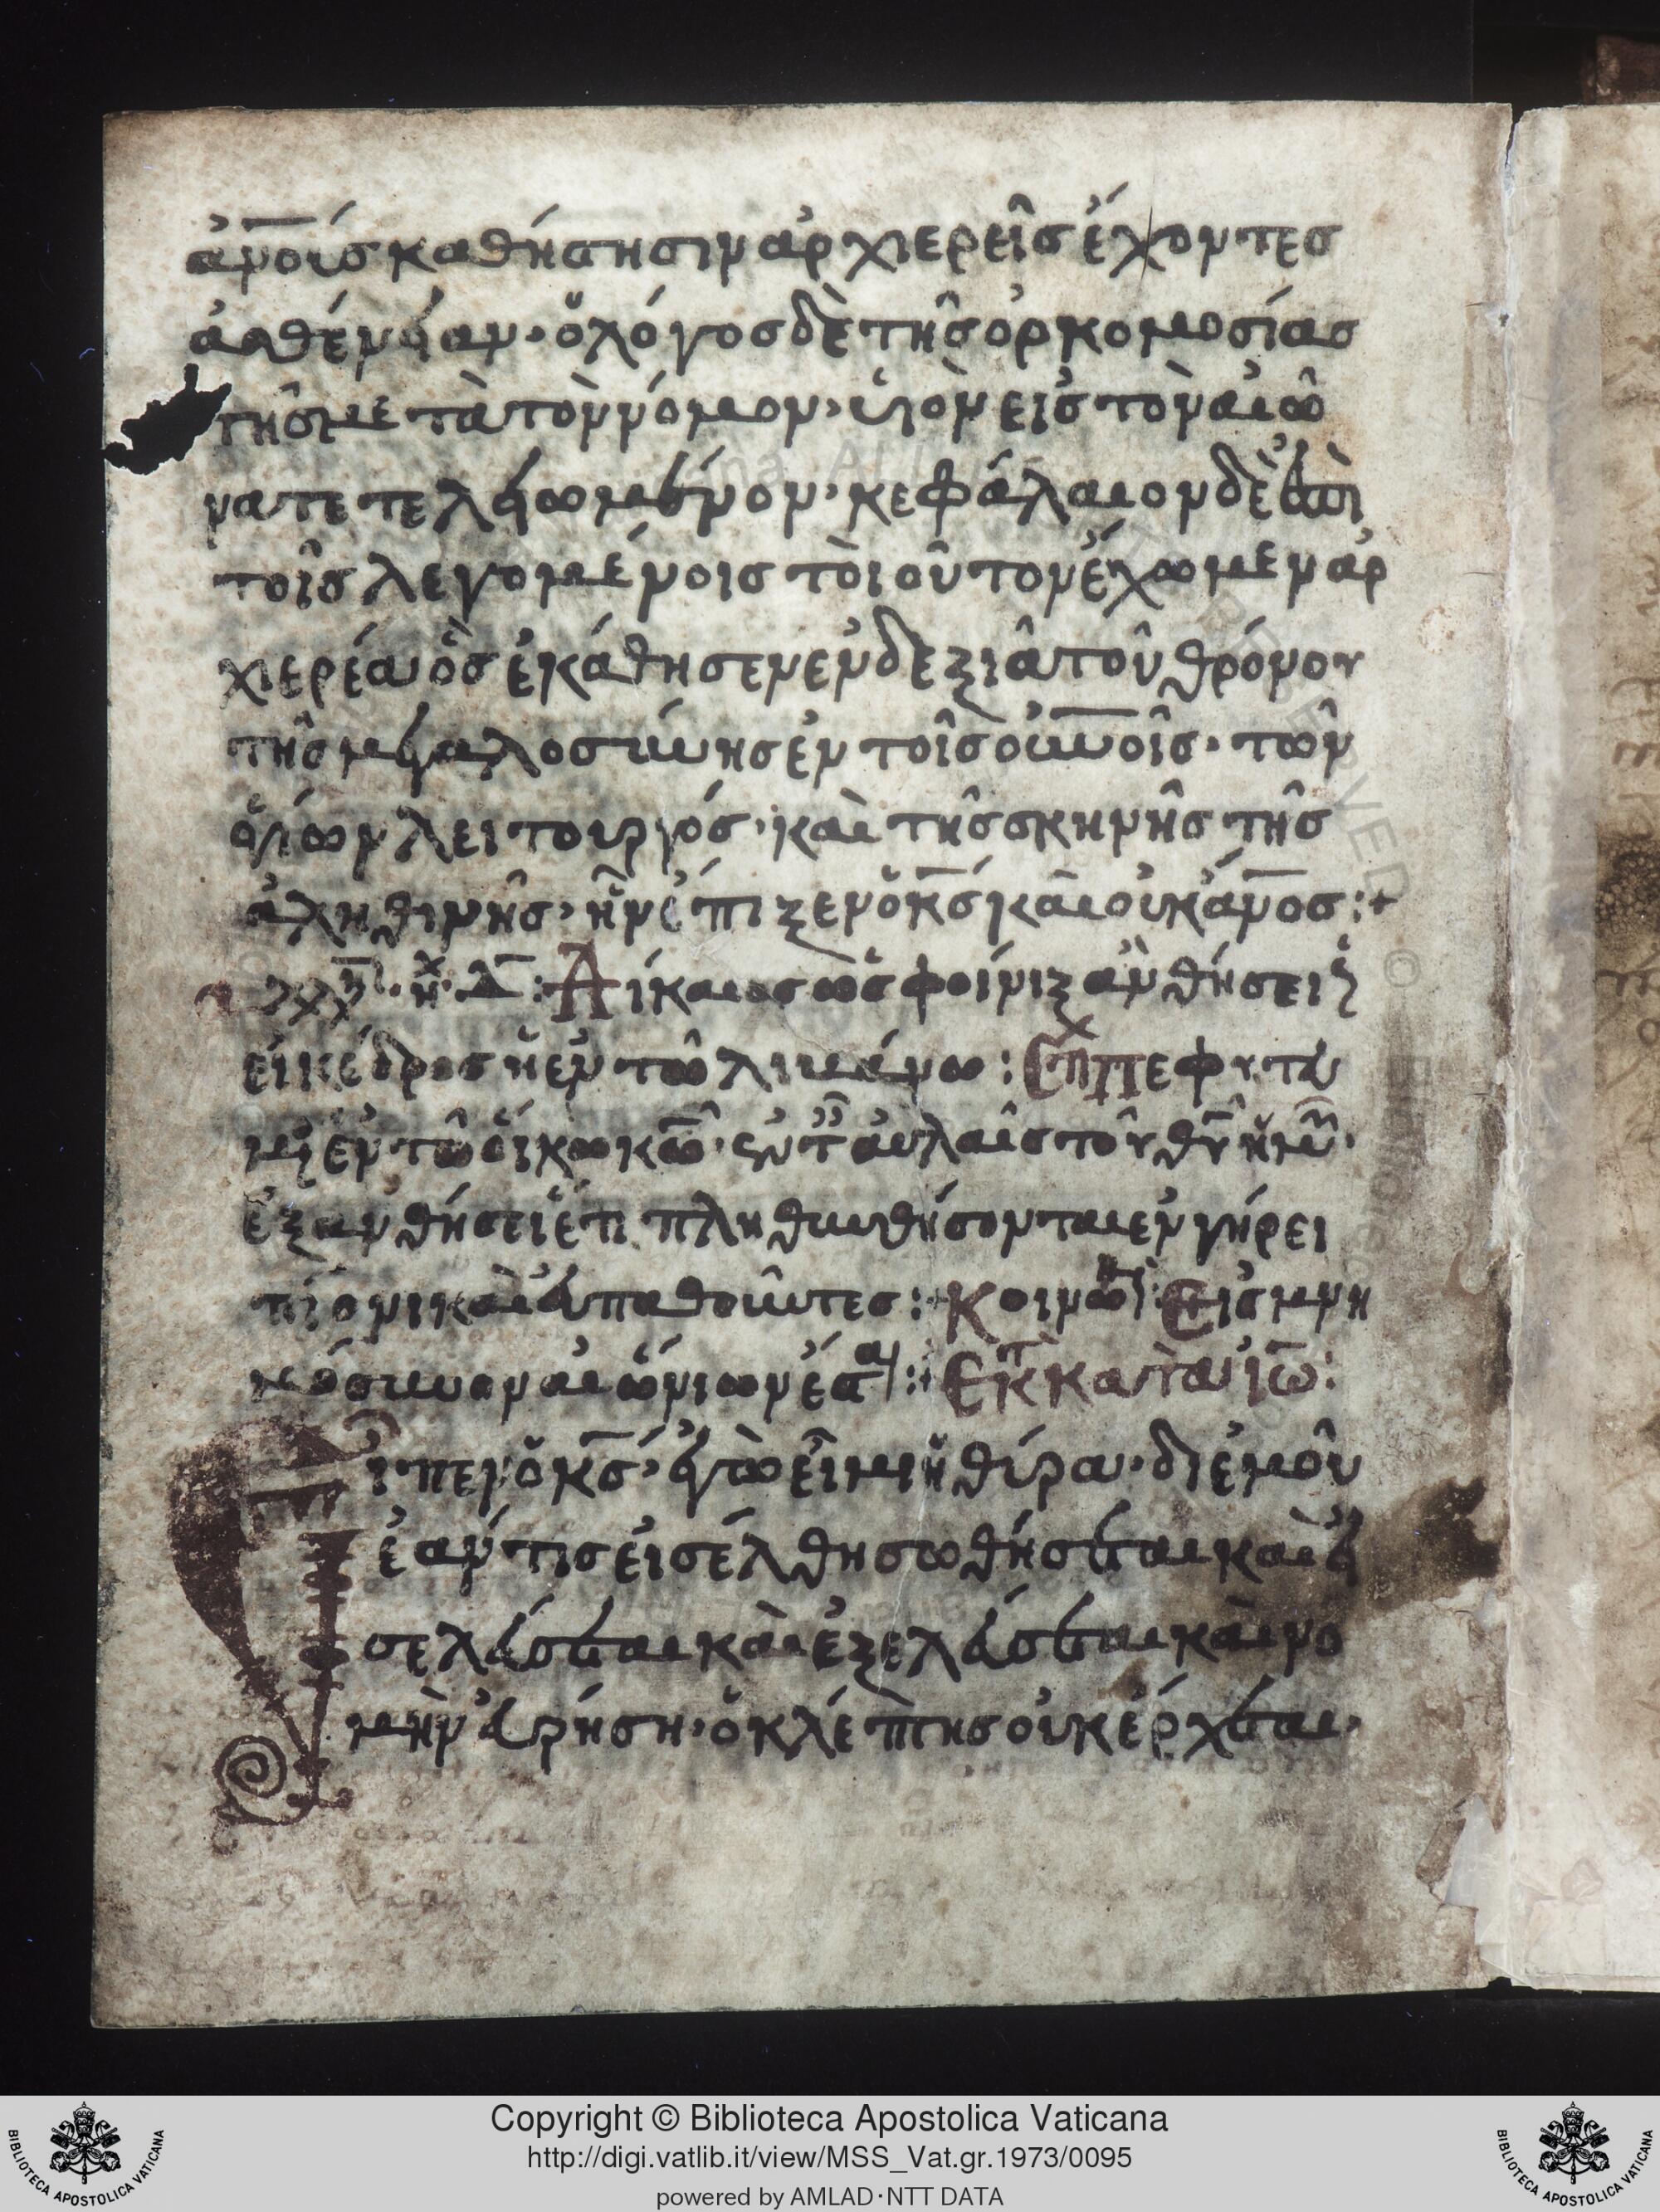 ἀν̅ούσ καθήστησιν ἀρχιερεῖσ ἔχοντεσ
ἀσθένειαν· ὁ λόγοσ δὲ τῆσ ὁρκομοσίασ
τῆσ με τὰ τὸν νόμον· ὑιὸν εἰσ τὸν αἰῶ
να τετελειωμένον· κεφάλαιον δὲ ἐπὶ
τοῖσ λεγομένοισ τὸιοῦτον ἔχωμεν ἀρ
χιερέα ὃσ ἐκάθησεν ἐν δεξιᾶ τοῦ θρόνου
τῆσ μεγαλοσύνησ ἐν τοῖσ οὐν̅οῖσ· τῶν
ἁγίων λειτουργόσ· καὶ τῆσ σκηνῆσ τῆσ
ἀληθινῆσ· ἣν ἔπιξεν ὁ κ̅σ καὶ οὐκ ἄν̅οσ:+
ἦχ Δ̅: Δίκαιοσ ὡσ φοίνιξ ἀνθήσει ὡσ
εἰ κέδροσ ἡ ἐν τῶ λιβάνω: Στιχ Πεφυτευ
μέ ἐν τῶ οἴκω κ̅ῶ· ἐν τ αὐλαῖσ τοῦ θ̅υ ἡμῶ·
ἐξανθήσει ἔτι πληθυνθήσονται ἐν γήρει
πίονι καὶ εὐπαθοῦντεσ:+ Κοινω Εἰσ μνη
μόσυναν αἰώνιων ἔσται:+ Ἐκ κατὰ ἰω̅:
Εἶπεν ὁ κ̅σ· ἐγὼ εἰμι ἡ θύρα· δι ἐμοῦ
ἐάν τισ εἰσέλθη σωθήσεται καὶ εἰ
σελεύσεται καὶ ἐξελεύσεται καὶ νο
μὴν εὑρήσῃ· ὁ κλέπτησ οὐκ ἔρχεται·
Copyright © Biblioteca Apostolica Vaticana
http://digi.vatlib.it/view/MSS_Vat.gr.1973/0095
powered by AMLAD·NTT DATA
BIBLIOTECA APOSTOLICA VATICANA
BIBLIOTECA APOSTOLICA VATICANA